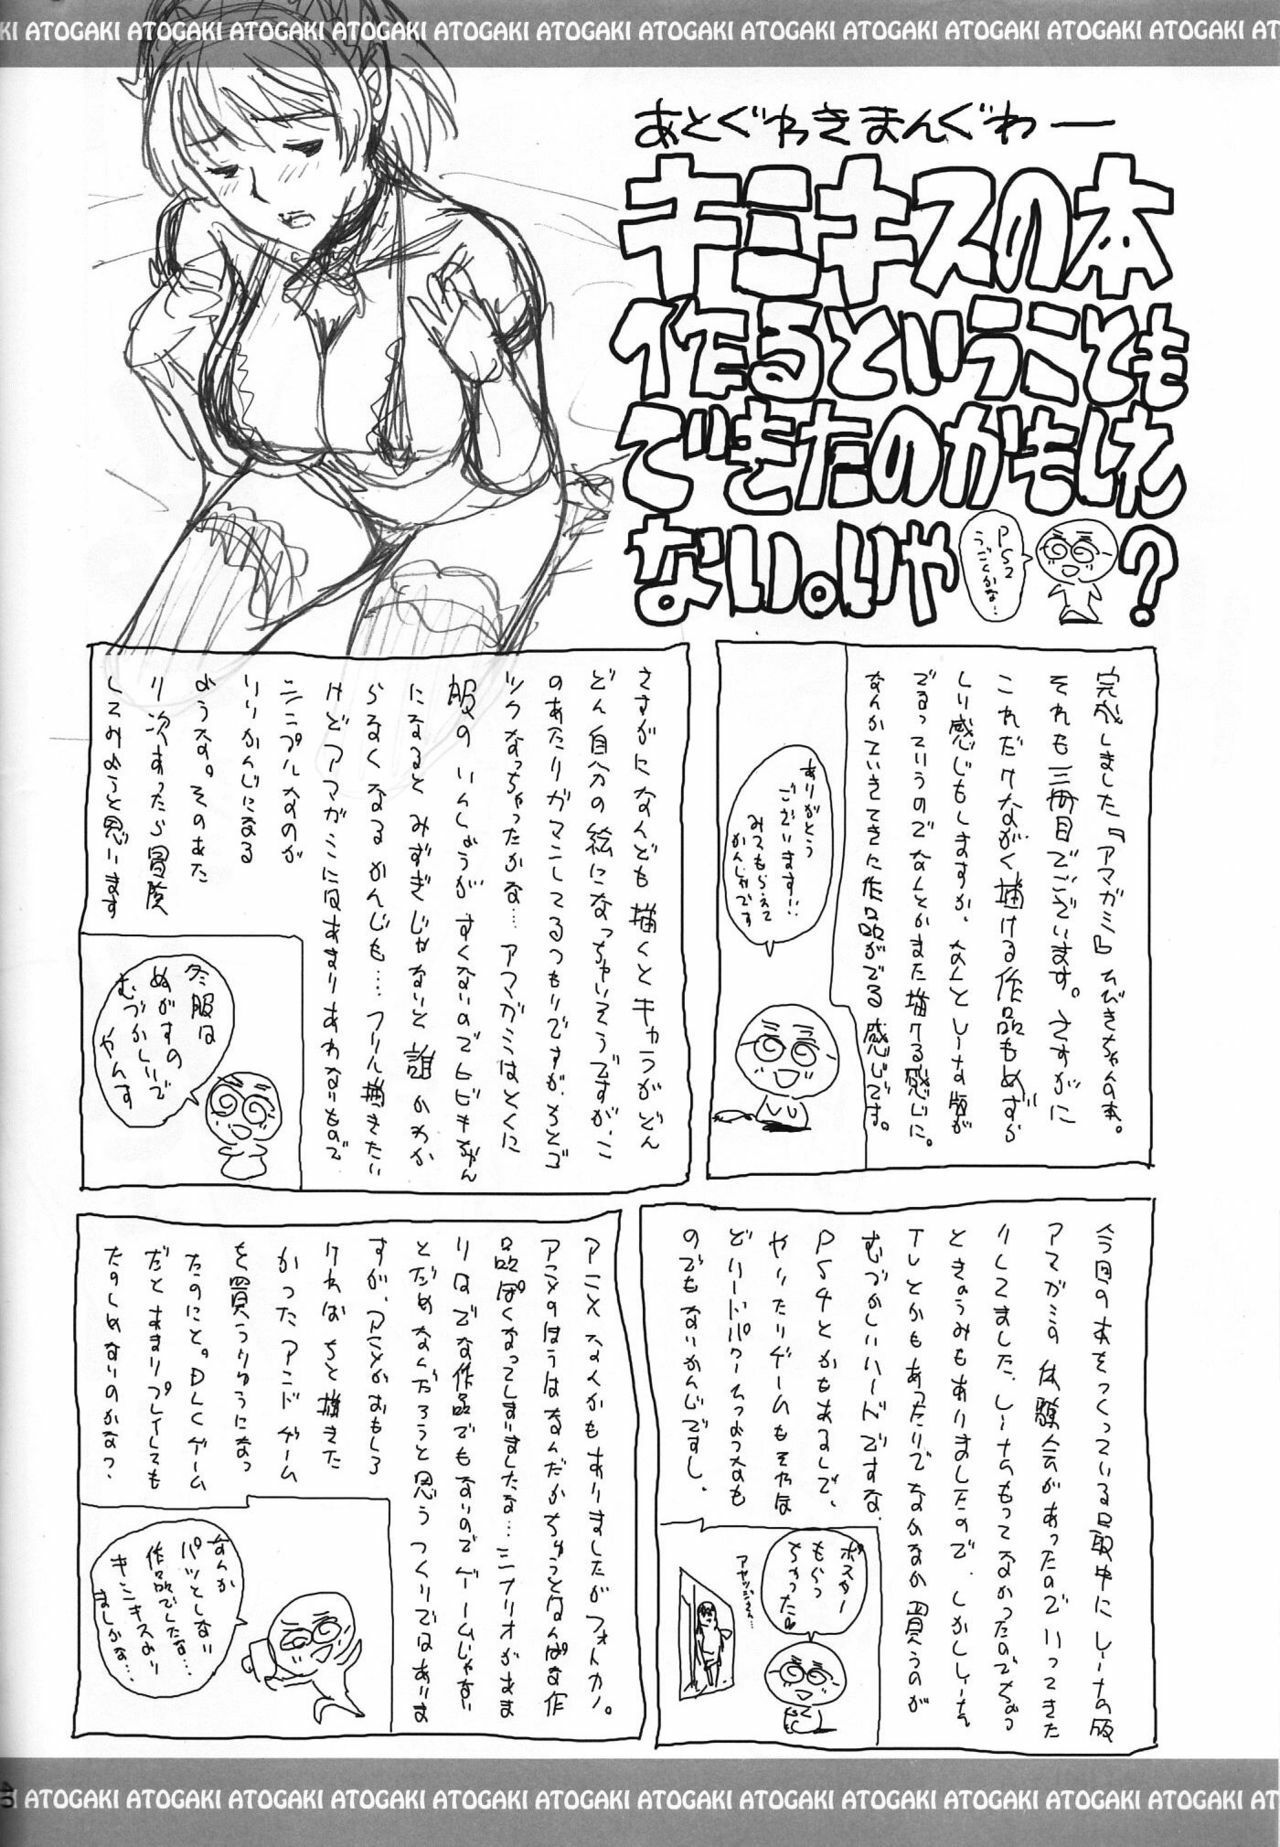 KI ATOGAKI ATOGAKI ATOGAKI ATOGAKI ATOGAKI ATOGAKI ATOGAKI ATOGAKI ATOGAKI ATOG
あとぐわきまんぐわー
キミキスの本
作るということも
できたのかもしれ
ない。いや?
PS2
うごくかな…
完成しました『アマガミ』ひびきちゃんの本。
それも三冊目でございます。さすがに
これだけながく描ける作品もめずら
しい感じもしますが、なんとレーな版が
でるっていうのでなんとかまた描ける感じに。
なんかていきてきた作品がでる感じです。
ありがとう
ございます!!
みてもらえて
かんしゃです
さすがになんども描くとキャラがどん
どん自分の絵になっちゃいそうですが、こ
のあたりガマンしてるつもりですが、ちとで
ツクなっちゃったかな…アマガミはとくに
服のいんしょうがすくないのでヒビキちゃん
になると みずぎじゃないと 誰かわか
らなくなる かんじも…フリル描きたい
けどアマガミにはあまりあわないもので
シンプルなのが
いいかんじになる
ような。そのあた
り次あったら冒険
してみようと思います
冬服は
ぬがすの
むづかしいで
やんす
今回の本をつくっている最中にレーナの版
アマガミの体験会があったのでいってきた
りしてました、レーナのもってなかったのでちょっ
ときょうみもありましたので、しかしレーナ
TLとかもあったりでなかなか買うのが
むづかしいハードですな
PS4とかもあるしで、
やりたいゲームもそれほ
どハードパワーつかうなのも
のでもないかんじですし。
ポスター
もらっ
ちゃった♥
アヤツジさん…
アニメなんかもありましたがフォトカノ。
アニメのほうはなんだかちょっとなんぱな作
品ぽくなってしまいましたな…シナリオがあま
りはでな作品でもないのでゲームじゃない
とだめなんだろうと思うつくりではありま
すが、アニメがおもしろ
ければちと描きた
かったアンドゲーム
を買うりゆうになっ
たのにと。DLCゲーム
だとあまりプレイしても
たのしめないのかなっ、
なんか
パッとしない
作品でしたな…
キミキスより
ましかな…
40
I ATOGAKI ATOGAKI ATOGAKI ATOGAKI ATOGAKI ATOGAKI ATOGAKI ATOGAKI ATOGAKI ATOGAKI